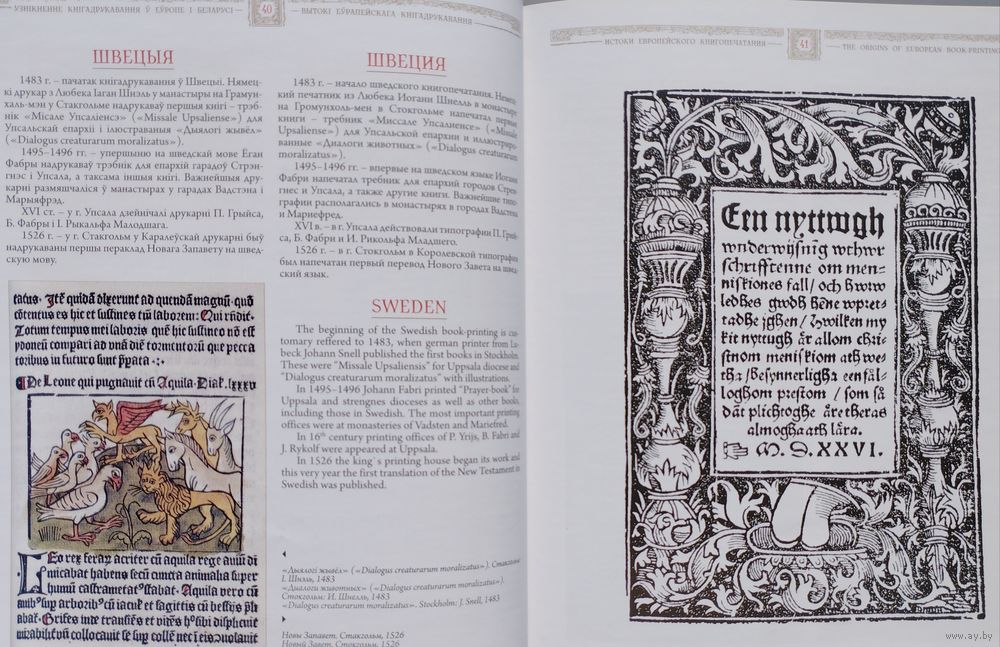 УЗНІКНЕННЕ КНІГАДРУКАВАННЯ Ў ЕЎРОПЕ І БЕЛАРУСІ
40
ВЫТОКІ ЕЎРАПЕЙСКАГА КНІГАДРУКАВАННЯ
ШВЕЦЫЯ
1483 г. – пачатак кнігадрукавання ў Швецыі. Нямец-
кі друкар з Любека Іаган Шнэль у манастыры на Грамун-
халь-мэн у Стакгольме надрукаваў першыя кнігі – трэб-
нік «Місале Упсаліенсэ» («Missale Upsaliense») для
Упсальскай епархіі і ілюстраваныя «Дыялогі жывёл»
(«Dialogus creaturarum moralizatus»).
1495–1496 гг. – упершыню на шведскай мове Ёган
Фабры надрукаваў трэбнік для епархій гарадоў Стрэн-
гнэс і Упсала, а таксама іншыя кнігі. Важнейшыя дру-
карні размяшчаліся ў манастырах у гарадах Вадстэна і
Марыяфрэд.
XVI ст. – у г. Упсала дзейнічалі друкарні П. Грыйса,
Б. Фабры і І. Рыкальфа Малодшага.
1526 г. – у г. Стакгольм у Каралеўскай друкарні быў
надрукаваны першы пераклад Новага Запавету на швед-
скую мову.
ШВЕЦИЯ
1483 г. – начало шведского книгопечатания. Немец-
кий печатник из Любека Иоганн Шнелль в монастыре
на Громунхоль-мен в Стокгольме напечатал первые
книги – требник «Миссале Упсалиенсе» («Missale
Upsaliense») для Упсальской епархии и иллюстриро-
ванные «Диалоги животных» («Dialogus creaturarum
moralizatus»).
1495–1496 гг. – впервые на шведском языке Иоганн
Фабри напечатал требник для епархий городов Стрен-
гнес и Упсала, а также другие книги. Важнейшие типо-
графии располагались в монастырях в городах Вадстена
и Мариефред.
XVI в. – в г. Упсала действовали типографии П. Грий-
са, Б. Фабри и И. Рикольфа Младшего.
1526 г. – в г. Стокгольм в Королевской типографии
был напечатан первый перевод Нового Завета на швед-
ский язык.
SWEDEN
The beginning of the Swedish book-printing is cus-
tomary reffered to 1483, when german printer from Lu-
beck Johann Snell published the first books in Stockholm.
These were "Missale Upsaliensis" for Uppsala diocese and
"Dialogus creaturarum moralizatus" with illustrations.
In 1495–1496 Johann Fabri printed "Prayer-book" for
Uppsala and strengnes dioceses as well as other books,
including those in Swedish. The most important printing
offices were at monasteries of Vadsten and Mariefred.
In 16th century printing offices of P. Yrijs, B. Fabri and
J. Rykolf were appeared at Uppsala.
In 1526 the king`s printing house began its work and
this very year the first translation of the New Testament in
Swedish was published.
«Дыялогі жывёл» («Dialogus creaturarum moralizatus»). Стакгольм:
І. Шнэль, 1483
«Диалоги животных» («Dialogus creaturarum moralizatus»).
Стокгольм: И. Шнелль, 1483
«Dialogus creaturarum moralizatus». Stockholm: J. Snell, 1483
Новы Запавет. Стакгольм, 1526
Новый Завет. Стокгольм, 1526
tatus. Itē quidā dixerunt ad quendā magnū quō
cōtentus es hic et sustines tm̄ laborem: Qui rn̄dit.
Totum tempus mei laboris quē hic sustineo nō est
ponen̄ compari ad unā diē tormentorū que pecca
toribus in futuro sunt pp̄ata
De Leone qui pugnavit cū Aquila. Dial. lxxxv
Leo rex feraꝝ acriter cū aquila rege aviū di
micabat habens secū cuncta animalia super
humū castrametatꝰ stabat. Aquila vero cū
avibꝰ sup arboribꝰ cū iacul et sagittis cū bestijs pli
abat. Grifes inde transiēs et vidēs hꝰ sibi displicuit
mirabilit
ИСТОКИ ЕВРОПЕЙСКОГО КНИГОПЕЧАТАНИЯ
41
THE ORIGINS OF EUROPEAN BOOK-PRINTING
Een nyttwgh
wnderwijsnīg wthwr
schrifftenne om men-
niskiones fall / och hwrw
ledhes gwdh hēne wpret-
tadhe jghen / Hwilken my
kit nyttugh är allom chri-
stnom meniskiom ath we-
tha / Besynnerligha eenfäl-
loghom prestom / som sä
dāt plichtoghe äre theras
almogha ath lära.
M. D. XXVI.
www.ay.by